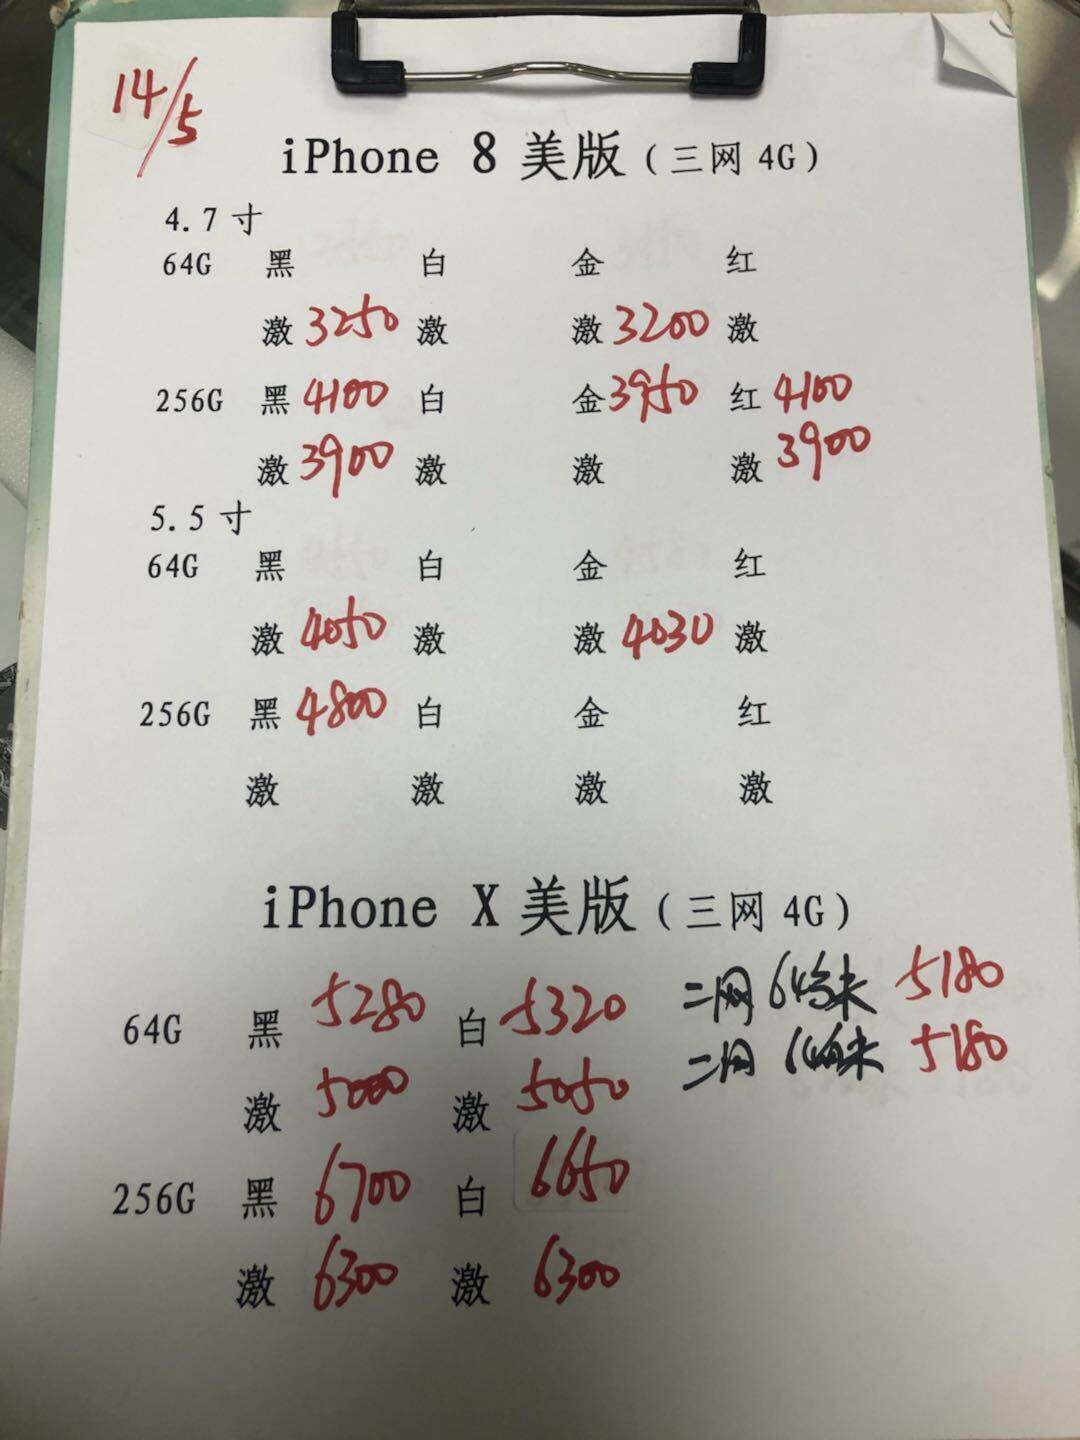 14/5
iPhone 8 美版（三网 4G）
4.7 寸
64G 黑 白 金 红
激 3250 激 激 3200 激
256G 黑 4100 白 金 3950 红 4100
激 3900 激 激 激 3900
5.5 寸
64G 黑 白 金 红
激 4050 激 激 4030 激
256G 黑 4800 白 金 红
激 激 激 激
iPhone X 美版（三网 4G）
64G 黑 5280 白 5320 二网 64 未 5180
激 5000 激 5050 二网 未 5180
256G 黑 6700 白 6650
激 6300 激 6300